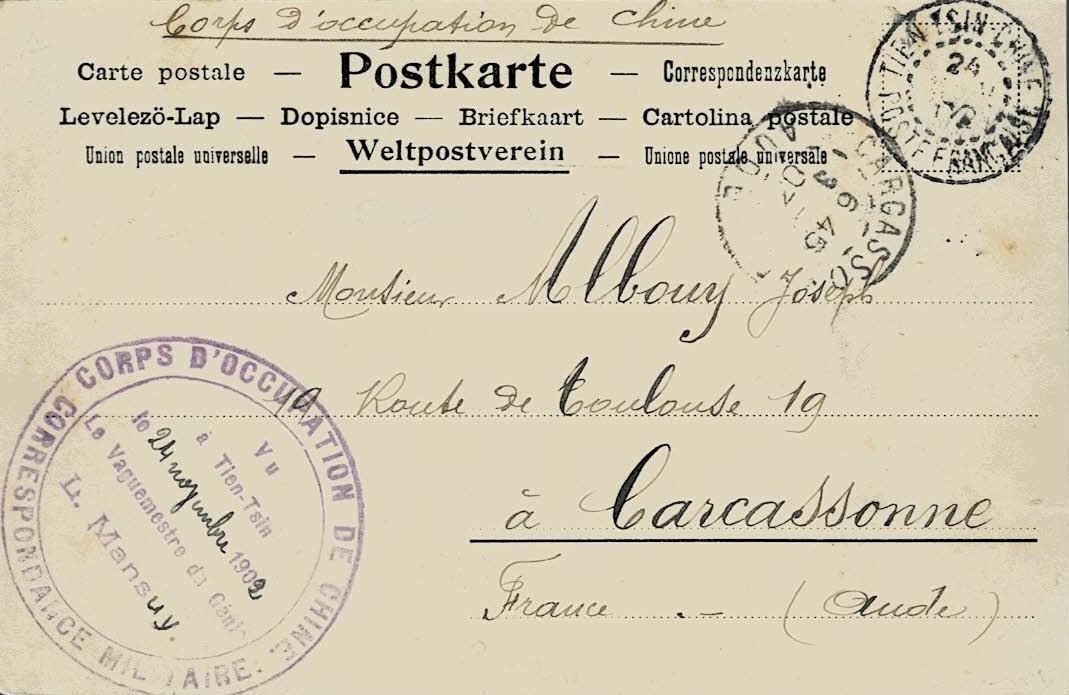 Corps d'occupation de Chine
Carte postale — Postkarte — Correspondenzkarte
Levelezö-Lap — Dopisnice — Briefkaart — Cartolina postale
Union postale universelle — Weltpostverein — Unione postale universale
TIEN-TSIN-CHINE
24
02
POSTE FRANÇAISE
CARCASSO
AUDE
6 45
Monsieur Albouy Joseph
19 Route de Toulouse 19
à Carcassonne
France . — (Aude)
CORPS D'OCCUPATION DE CHINE
CORRESPONDANCE MILITAIRE.
Vu
à Tien-Tsin
le 24 novembre 1902
Le Vaguemestre du Génie
L. Mansuy.